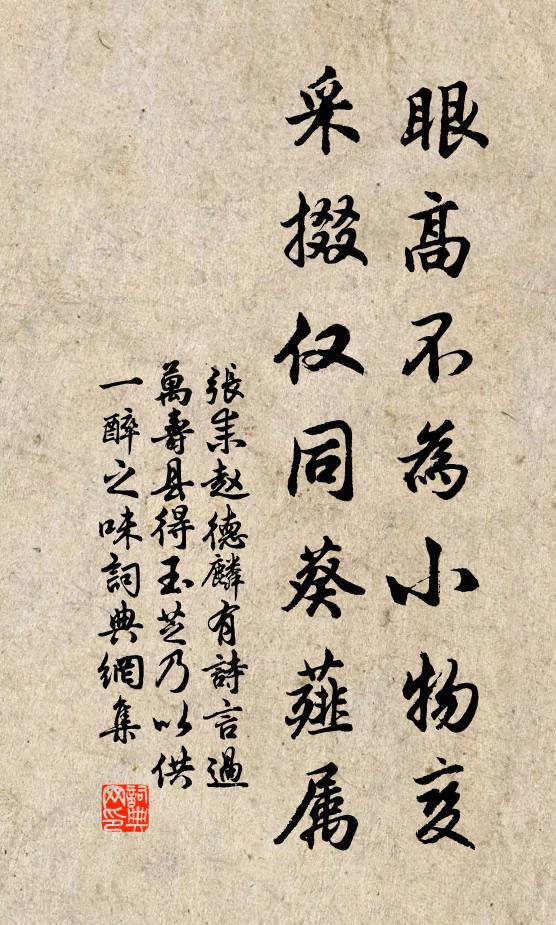 眼高不為小物变
采掇仅同葵薤属
張耒赵德麟有詩言過
萬壽县得玉芝乃以供
一醉之味詞典網集
詞典
网印